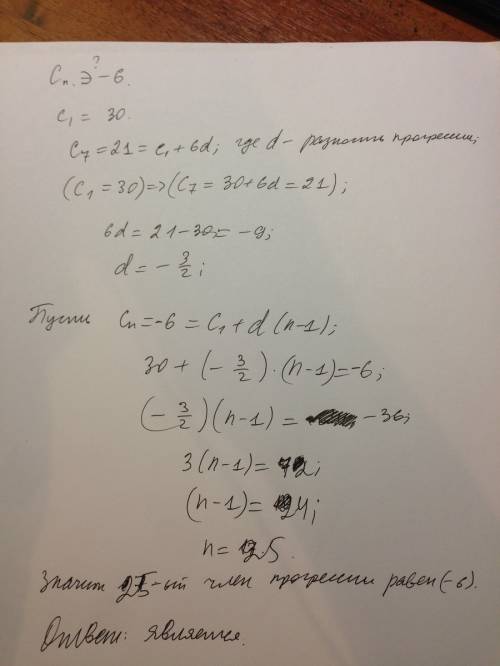 Cₙ ∋? -6.
c₁ = 30.
c₇ = 21 = c₁ + 6d; где d - разность прогрессии;
(C₁ = 30) => (C₇ = 30 + 6d = 21);
6d = 21 - 30 = -9;
d = - 3/2;
Пусть Cₙ = -6 = C₁ + d (n-1);
30 + (- 3/2) · (n-1) = -6;
(- 3/2)(n-1) = -36;
3(n-1) = 72;
(n-1) = 24;
n = 25.
Значит 25-ый член прогрессии равен (-6).
Ответ: является.